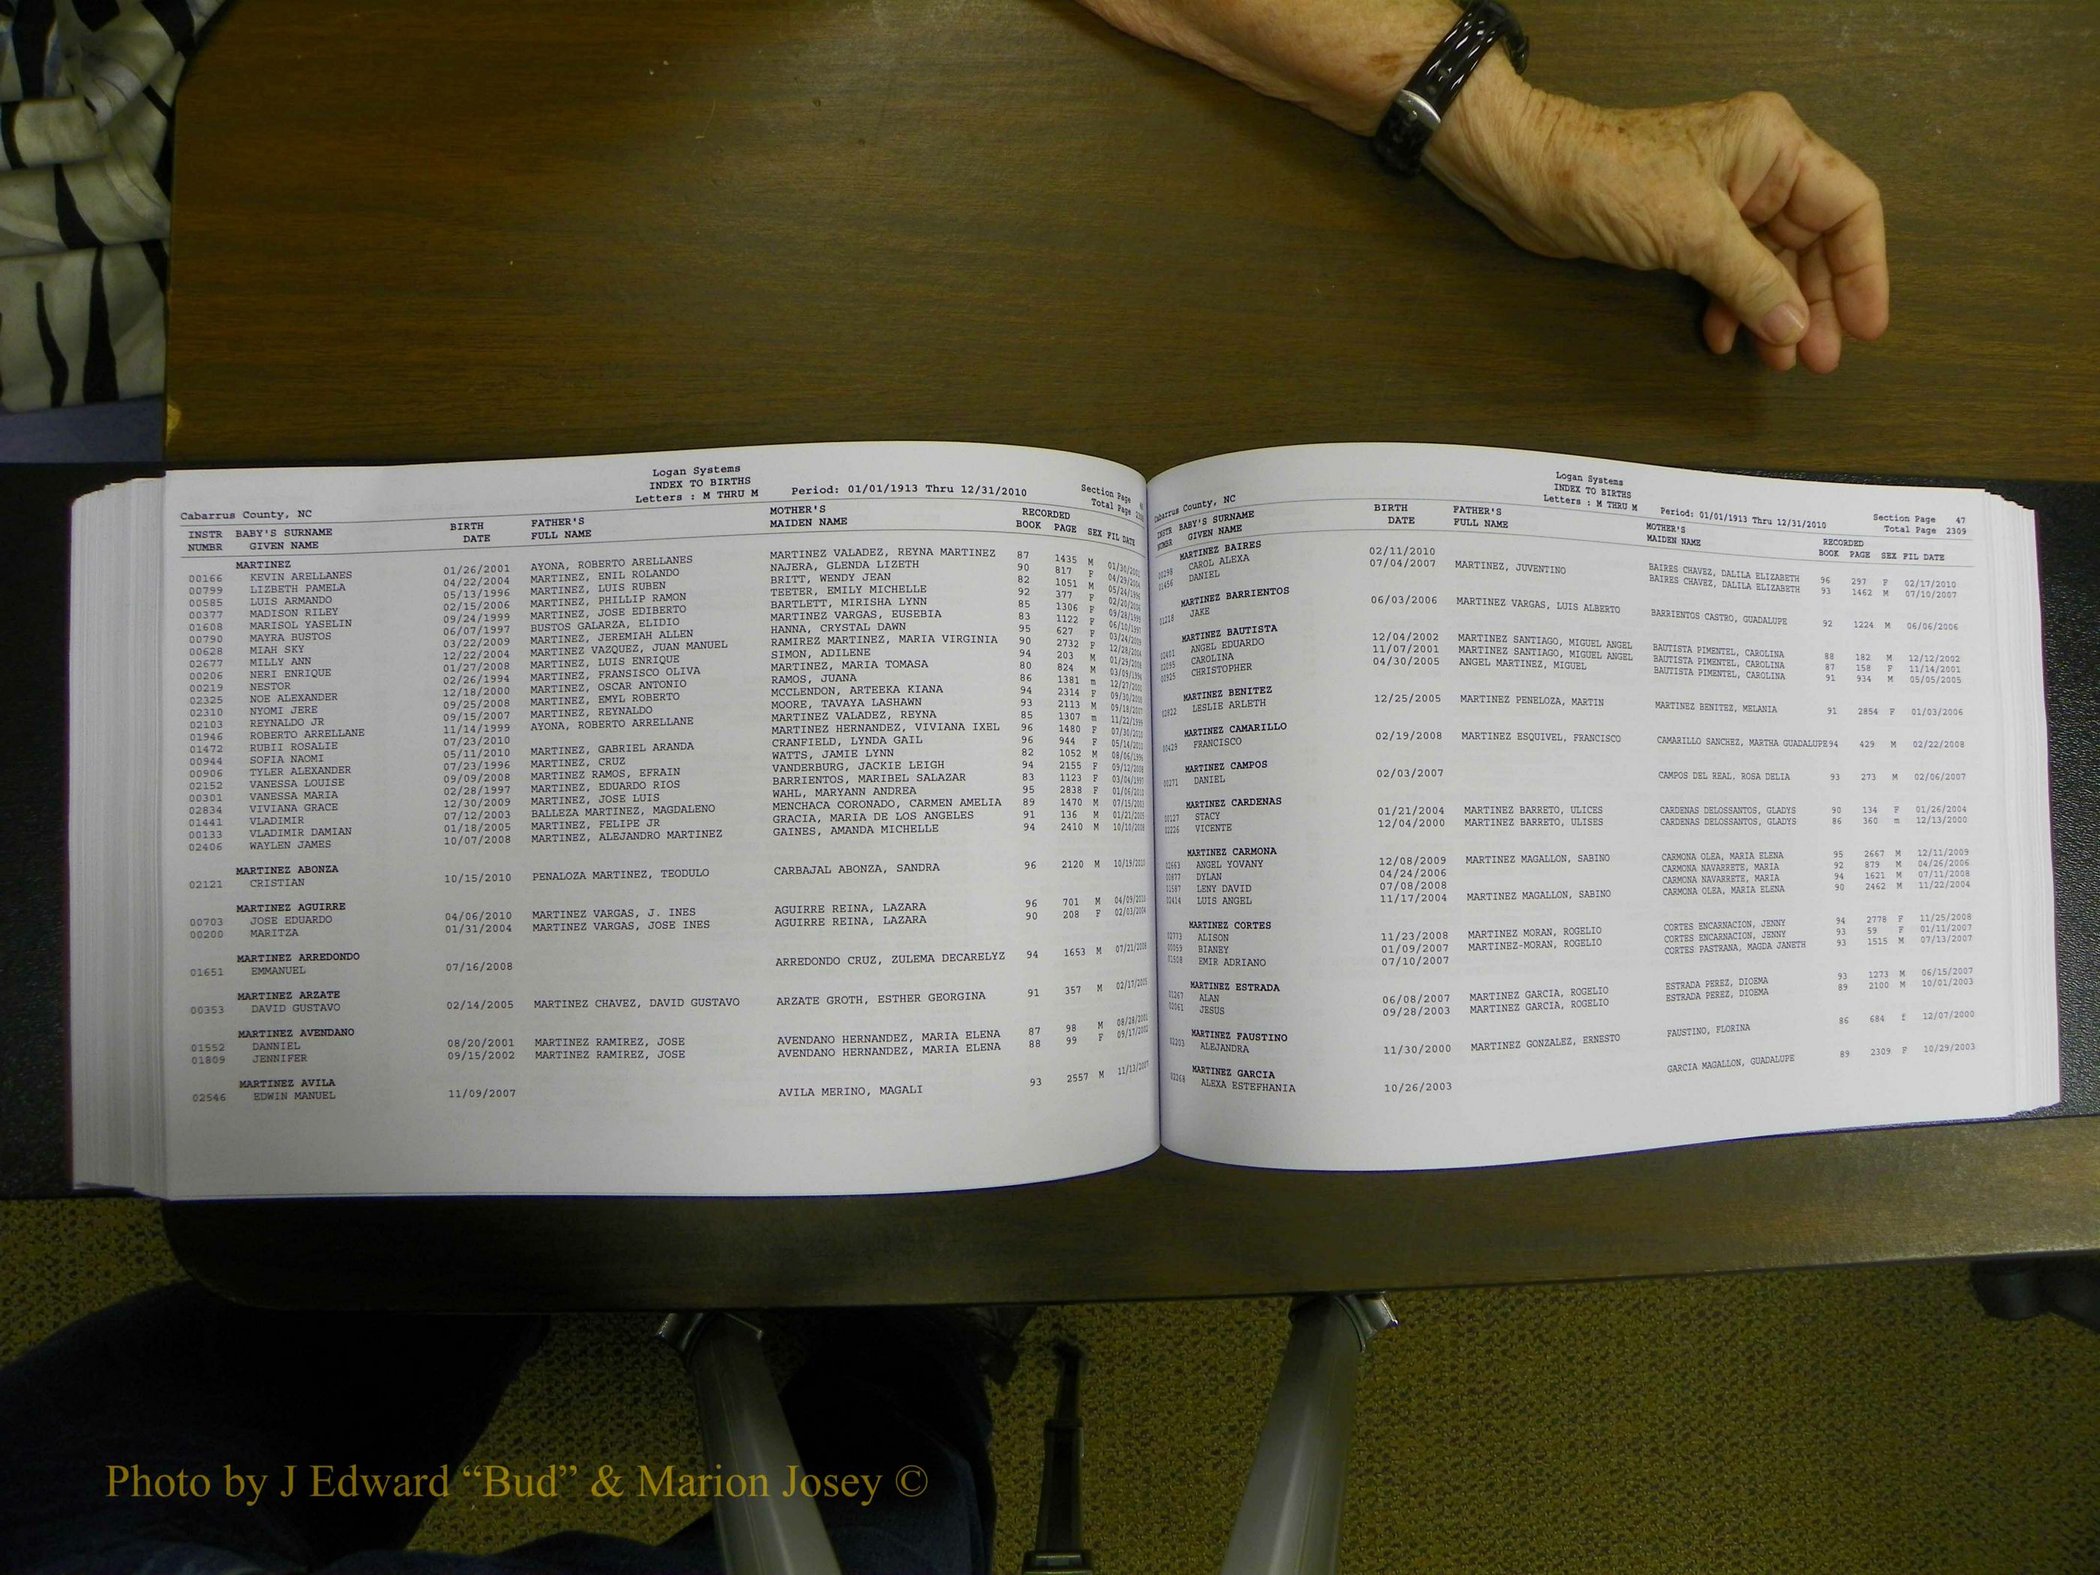 Logan Systems
INDEX TO BIRTHS
Letters : M THRU M Period: 01/01/1913 Thru 12/31/2010
Section Page
Total Page
Cabarrus County, NC
INSTR BABY'S SURNAME BIRTH FATHER'S MOTHER'S RECORDED
NUMBR GIVEN NAME DATE FULL NAME MAIDEN NAME BOOK PAGE SEX FIL DATE
MARTINEZ
00166 KEVIN ARELLANES 01/26/2001 AYONA, ROBERTO ARELLANES MARTINEZ VALADEZ, REYNA MARTINEZ 87 1435 M 01/30/2001
00799 LIZBETH PAMELA 04/22/2004 MARTINEZ, ENIL ROLANDO NAJERA, GLENDA LIZETH 90 817 F 04/29/2004
00585 LUIS ARMANDO 05/13/1996 MARTINEZ, LUIS RUBEN BRITT, WENDY JEAN 82 1051 M 05/24/1996
00377 MADISON RILEY 02/15/2006 MARTINEZ, PHILLIP RAMON TEETER, EMILY MICHELLE 92 377 F 02/20/2006
01608 MARISOL YASELIN 09/24/1999 MARTINEZ, JOSE EDIBERTO BARTLETT, MIRISHA LYNN 85 1306 F 09/28/1999
00790 MAYRA BUSTOS 06/07/1997 BUSTOS GALARZA, ELIDIO MARTINEZ VARGAS, EUSEBIA 83 1122 F 06/10/1997
00628 MIAH SKY 03/22/2009 MARTINEZ, JEREMIAH ALLEN HANNA, CRYSTAL DAWN 95 627 F 03/24/2009
02677 MILLY ANN 12/22/2004 MARTINEZ VAZQUEZ, JUAN MANUEL RAMIREZ MARTINEZ, MARIA VIRGINIA 90 2732 F 12/28/2004
00206 NERI ENRIQUE 01/27/2008 MARTINEZ, LUIS ENRIQUE SIMON, ADILENE 94 203 M 01/29/2008
00219 NESTOR 02/26/1994 MARTINEZ, FRANSISCO OLIVA MARTINEZ, MARIA TOMASA 80 824 M 03/09/1994
02325 NOE ALEXANDER 12/18/2000 MARTINEZ, OSCAR ANTONIO RAMOS, JUANA 86 1381 m 12/27/2000
02310 NYOMI JERE 09/25/2008 MARTINEZ, EMYL ROBERTO MCCLENDON, ARTEEKA KIANA 94 2314 F 09/30/2008
02103 REYNALDO JR 09/15/2007 MARTINEZ, REYNALDO MOORE, TAVAYA LASHAWN 93 2113 M 09/18/2007
01946 ROBERTO ARRELLANE 11/14/1999 AYONA, ROBERTO ARRELLANE MARTINEZ VALADEZ, REYNA 85 1307 m 11/22/1999
01472 RUBII ROSALIE 07/23/2010 MARTINEZ HERNANDEZ, VIVIANA IXEL 96 1480 F 07/30/2010
00944 SOFIA NAOMI 05/11/2010 MARTINEZ, GABRIEL ARANDA CRANFIELD, LYNDA GAIL 96 944 F 05/14/2010
00906 TYLER ALEXANDER 07/23/1996 MARTINEZ, CRUZ WATTS, JAMIE LYNN 82 1052 M 08/06/1996
02152 VANESSA LOUISE 09/09/2008 MARTINEZ RAMOS, EFRAIN VANDERBURG, JACKIE LEIGH 94 2155 F 09/12/2008
00301 VANESSA MARIA 02/28/1997 MARTINEZ, EDUARDO RIOS BARRIENTOS, MARIBEL SALAZAR 83 1123 F 03/04/1997
02834 VIVIANA GRACE 12/30/2009 MARTINEZ, JOSE LUIS WAHL, MARYANN ANDREA 95 2838 F 01/06/2010
01441 VLADIMIR 07/12/2003 BALLEZA MARTINEZ, MAGDALENO MENCHACA CORONADO, CARMEN AMELIA 89 1470 M 07/15/2003
00133 VLADIMIR DAMIAN 01/18/2005 MARTINEZ, FELIPE JR GRACIA, MARIA DE LOS ANGELES 91 136 M 01/21/2005
02406 WAYLEN JAMES 10/07/2008 MARTINEZ, ALEJANDRO MARTINEZ GAINES, AMANDA MICHELLE 94 2410 M 10/10/2008
MARTINEZ ABONZA
02121 CRISTIAN 10/15/2010 PENALOZA MARTINEZ, TEODULO CARBAJAL ABONZA, SANDRA 96 2120 M 10/19/2010
MARTINEZ AGUIRRE
00703 JOSE EDUARDO 04/06/2010 MARTINEZ VARGAS, J. INES AGUIRRE REINA, LAZARA 96 701 M 04/09/2010
00200 MARITZA 01/31/2004 MARTINEZ VARGAS, JOSE INES AGUIRRE REINA, LAZARA 90 208 F 02/03/2004
MARTINEZ ARREDONDO
01651 EMMANUEL 07/16/2008 ARREDONDO CRUZ, ZULEMA DECARELYZ 94 1653 M 07/21/2008
MARTINEZ ARZATE
00353 DAVID GUSTAVO 02/14/2005 MARTINEZ CHAVEZ, DAVID GUSTAVO ARZATE GROTH, ESTHER GEORGINA 91 357 M 02/17/2005
MARTINEZ AVENDANO
01552 DANNIEL 08/20/2001 MARTINEZ RAMIREZ, JOSE AVENDANO HERNANDEZ, MARIA ELENA 87 98 M 08/28/2001
01809 JENNIFER 09/15/2002 MARTINEZ RAMIREZ, JOSE AVENDANO HERNANDEZ, MARIA ELENA 88 99 F 09/17/2002
MARTINEZ AVILA
02546 EDWIN MANUEL 11/09/2007 AVILA MERINO, MAGALI 93 2557 M 11/13/2007
Logan Systems
INDEX TO BIRTHS
Letters : M THRU M Period: 01/01/1913 Thru 12/31/2010
Section Page 47
Total Page 2309
Cabarrus County, NC
INSTR BABY'S SURNAME BIRTH FATHER'S MOTHER'S RECORDED
NUMBR GIVEN NAME DATE FULL NAME MAIDEN NAME BOOK PAGE SEX FIL DATE
MARTINEZ BAIRES
00298 CAROL ALEXA 02/11/2010 BAIRES CHAVEZ, DALILA ELIZABETH 96 297 F 02/17/2010
01456 DANIEL 07/04/2007 MARTINEZ, JUVENTINO BAIRES CHAVEZ, DALILA ELIZABETH 93 1462 M 07/10/2007
MARTINEZ BARRIENTOS
01218 JAKE 06/03/2006 MARTINEZ VARGAS, LUIS ALBERTO BARRIENTOS CASTRO, GUADALUPE 92 1224 M 06/06/2006
MARTINEZ BAUTISTA
02401 ANGEL EDUARDO 12/04/2002 MARTINEZ SANTIAGO, MIGUEL ANGEL BAUTISTA PIMENTEL, CAROLINA 88 182 M 12/12/2002
02095 CAROLINA 11/07/2001 MARTINEZ SANTIAGO, MIGUEL ANGEL BAUTISTA PIMENTEL, CAROLINA 87 158 F 11/14/2001
00925 CHRISTOPHER 04/30/2005 ANGEL MARTINEZ, MIGUEL BAUTISTA PIMENTEL, CAROLINA 91 934 M 05/05/2005
MARTINEZ BENITEZ
02822 LESLIE ARLETH 12/25/2005 MARTINEZ PENELOZA, MARTIN MARTINEZ BENITEZ, MELANIA 91 2854 F 01/03/2006
MARTINEZ CAMARILLO
00429 FRANCISCO 02/19/2008 MARTINEZ ESQUIVEL, FRANCISCO CAMARILLO SANCHEZ, MARTHA GUADALUPE94 429 M 02/22/2008
MARTINEZ CAMPOS
00271 DANIEL 02/03/2007 CAMPOS DEL REAL, ROSA DELIA 93 273 M 02/06/2007
MARTINEZ CARDENAS
00127 STACY 01/21/2004 MARTINEZ BARRETO, ULICES CARDENAS DELOSSANTOS, GLADYS 90 134 F 01/26/2004
02226 VICENTE 12/04/2000 MARTINEZ BARRETO, ULISES CARDENAS DELOSSANTOS, GLADYS 86 360 m 12/13/2000
MARTINEZ CARMONA
02663 ANGEL YOVANY 12/08/2009 MARTINEZ MAGALLON, SABINO CARMONA OLEA, MARIA ELENA 95 2667 M 12/11/2009
00877 DYLAN 04/24/2006 CARMONA NAVARRETE, MARIA 92 879 M 04/26/2006
01587 LENY DAVID 07/08/2008 CARMONA NAVARRETE, MARIA 94 1621 M 07/11/2008
02414 LUIS ANGEL 11/17/2004 MARTINEZ MAGALLON, SABINO CARMONA OLEA, MARIA ELENA 90 2462 M 11/22/2004
MARTINEZ CORTES
02773 ALISON 11/23/2008 MARTINEZ MORAN, ROGELIO CORTES ENCARNACION, JENNY 94 2778 F 11/25/2008
00059 BIANEY 01/09/2007 MARTINEZ-MORAN, ROGELIO CORTES ENCARNACION, JENNY 93 59 F 01/11/2007
01508 EMIR ADRIANO 07/10/2007 CORTES PASTRANA, MAGDA JANETH 93 1515 M 07/13/2007
MARTINEZ ESTRADA
01267 ALAN 06/08/2007 MARTINEZ GARCIA, ROGELIO ESTRADA PEREZ, DIOEMA 93 1273 M 06/15/2007
02061 JESUS 09/28/2003 MARTINEZ GARCIA, ROGELIO ESTRADA PEREZ, DIOEMA 89 2100 M 10/01/2003
MARTINEZ FAUSTINO
02203 ALEJANDRA 11/30/2000 MARTINEZ GONZALEZ, ERNESTO FAUSTINO, FLORINA 86 684 f 12/07/2000
MARTINEZ GARCIA
02268 ALEXA ESTEFHANIA 10/26/2003 GARCIA MAGALLON, GUADALUPE 89 2309 F 10/29/2003
Photo by J Edward “Bud” & Marion Josey ©